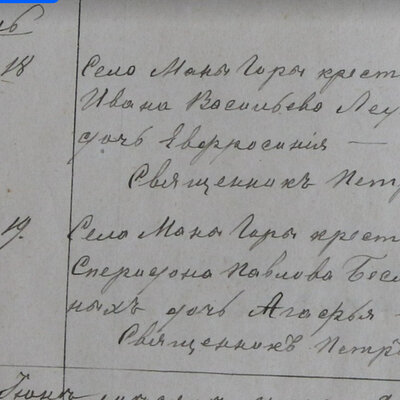 18
Село Маны Горы крест
Ивана Васильево Леу
дочь Евфросинія —
Священникъ Петр
19.
Село Маны Горы крест
Спиридона Павлова Бес
ныхъ дочь Агафья -
Священникъ Петръ